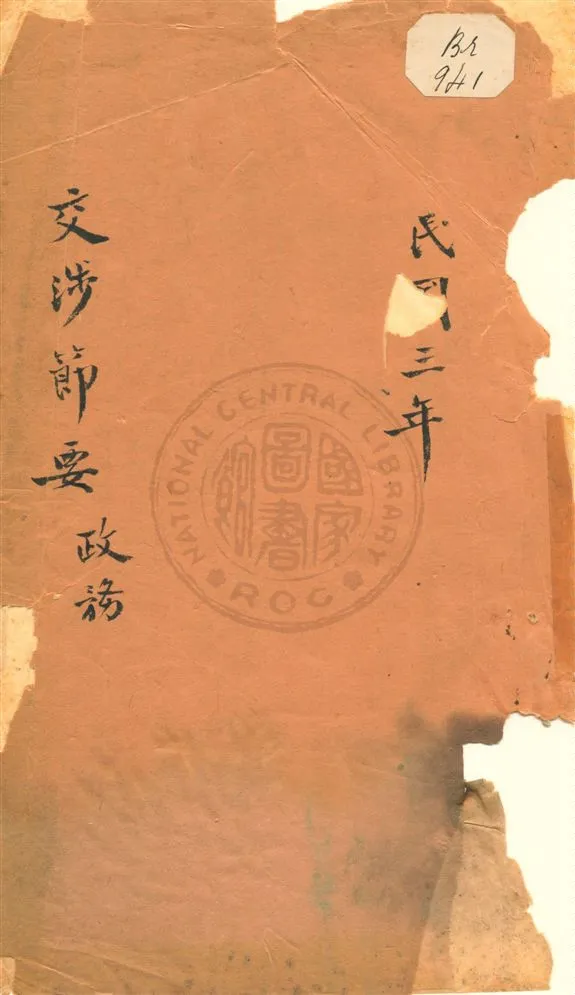 Br
941
民国三年
交涉節要 政務
NATIONAL CENTRAL LIBRARY
國家圖書館
ROC